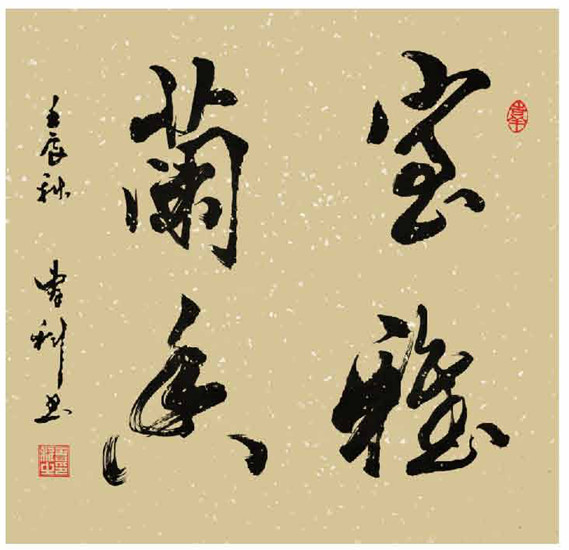 室雅
蘭香
壬辰秋
科书